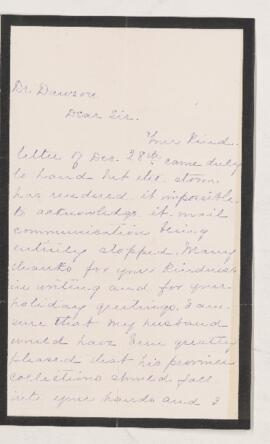 Dr. Dawson
Dear Sir.
Your kind
letter of Dec. 28th came duly
to hand but the storm
has rendered it impossible
to acknowledge it. mail
communication being
entirely stopped. Many
thanks for your kindness
in writing and for your
holiday greetings. I am
sure that my husband
would have been greatly
pleased that his
collections should fall
into your hands and I